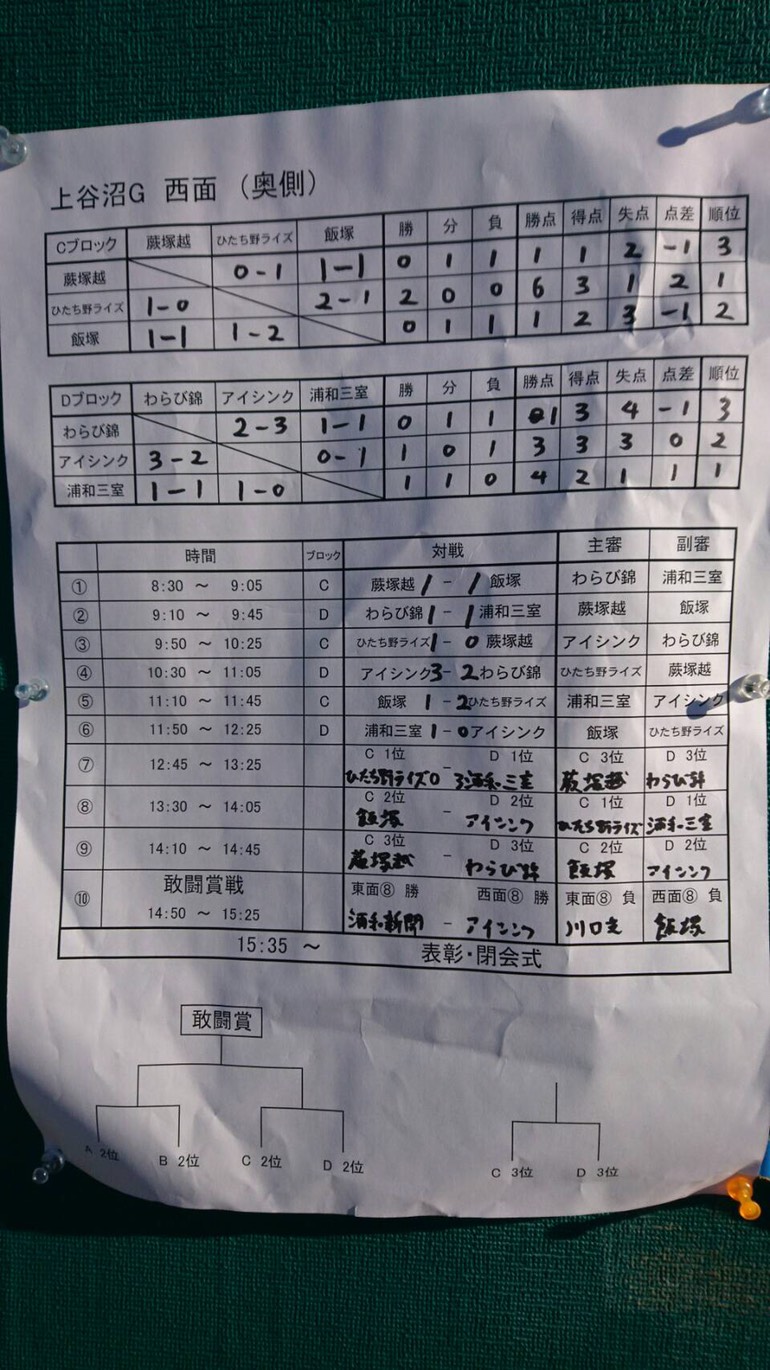 上谷沼G 西面 （奥側）
Cブロック 蕨塚越 ひたち野ライズ 飯塚 勝 分 負 勝点 得点 失点 点差 順位
蕨塚越 0-1 1-1 0 1 1 1 1 2 -1 3
ひたち野ライズ 1-0 2-1 2 0 0 6 3 1 2 1
飯塚 1-1 1-2 0 1 1 1 2 3 -1 2
Dブロック わらび錦 アイシンク 浦和三室 勝 分 負 勝点 得点 失点 点差 順位
わらび錦 2-3 1-1 0 1 1 1 3 4 -1 3
アイシンク 3-2 0-1 1 0 1 3 3 3 0 2
浦和三室 1-1 1-0 1 1 0 4 2 1 1 1
時間 ブロック 対戦 主審 副審
① 8:30 ～ 9:05 C 蕨塚越 1 - 1 飯塚 わらび錦 浦和三室
② 9:10 ～ 9:45 D わらび錦 1 - 1 浦和三室 蕨塚越 飯塚
③ 9:50 ～ 10:25 C ひたち野ライズ 1 - 0 蕨塚越 アイシンク わらび錦
④ 10:30 ～ 11:05 D アイシンク 3 - 2 わらび錦 ひたち野ライズ 蕨塚越
⑤ 11:10 ～ 11:45 C 飯塚 1 - 2 ひたち野ライズ 浦和三室 アイシンク
⑥ 11:50 ～ 12:25 D 浦和三室 1 - 0 アイシンク 飯塚 ひたち野ライズ
C 1位 D 1位 C 3位 D 3位
⑦ 12:45 ～ 13:25 -
ひたち野ライズ 0 3 浦和三室 蕨塚越 わらび錦
C 2位 D 2位 C 1位 D 1位
⑧ 13:30 ～ 14:05
飯塚 - アイシンク ひたち野ライズ 浦和三室
C 3位 D 3位 C 2位 D 2位
⑨ 14:10 ～ 14:45
蕨塚越 - わらび錦 飯塚 アイシンク
敢闘賞戦 東面⑧ 勝 西面⑧ 勝 東面⑧ 負 西面⑧ 負
⑩ 14:50 ～ 15:25 浦和新開 - アイシンク 川口支 飯塚
15:35 ～ 表彰・閉会式
敢闘賞
A 2位 B 2位 C 2位 D 2位 C 3位 D 3位